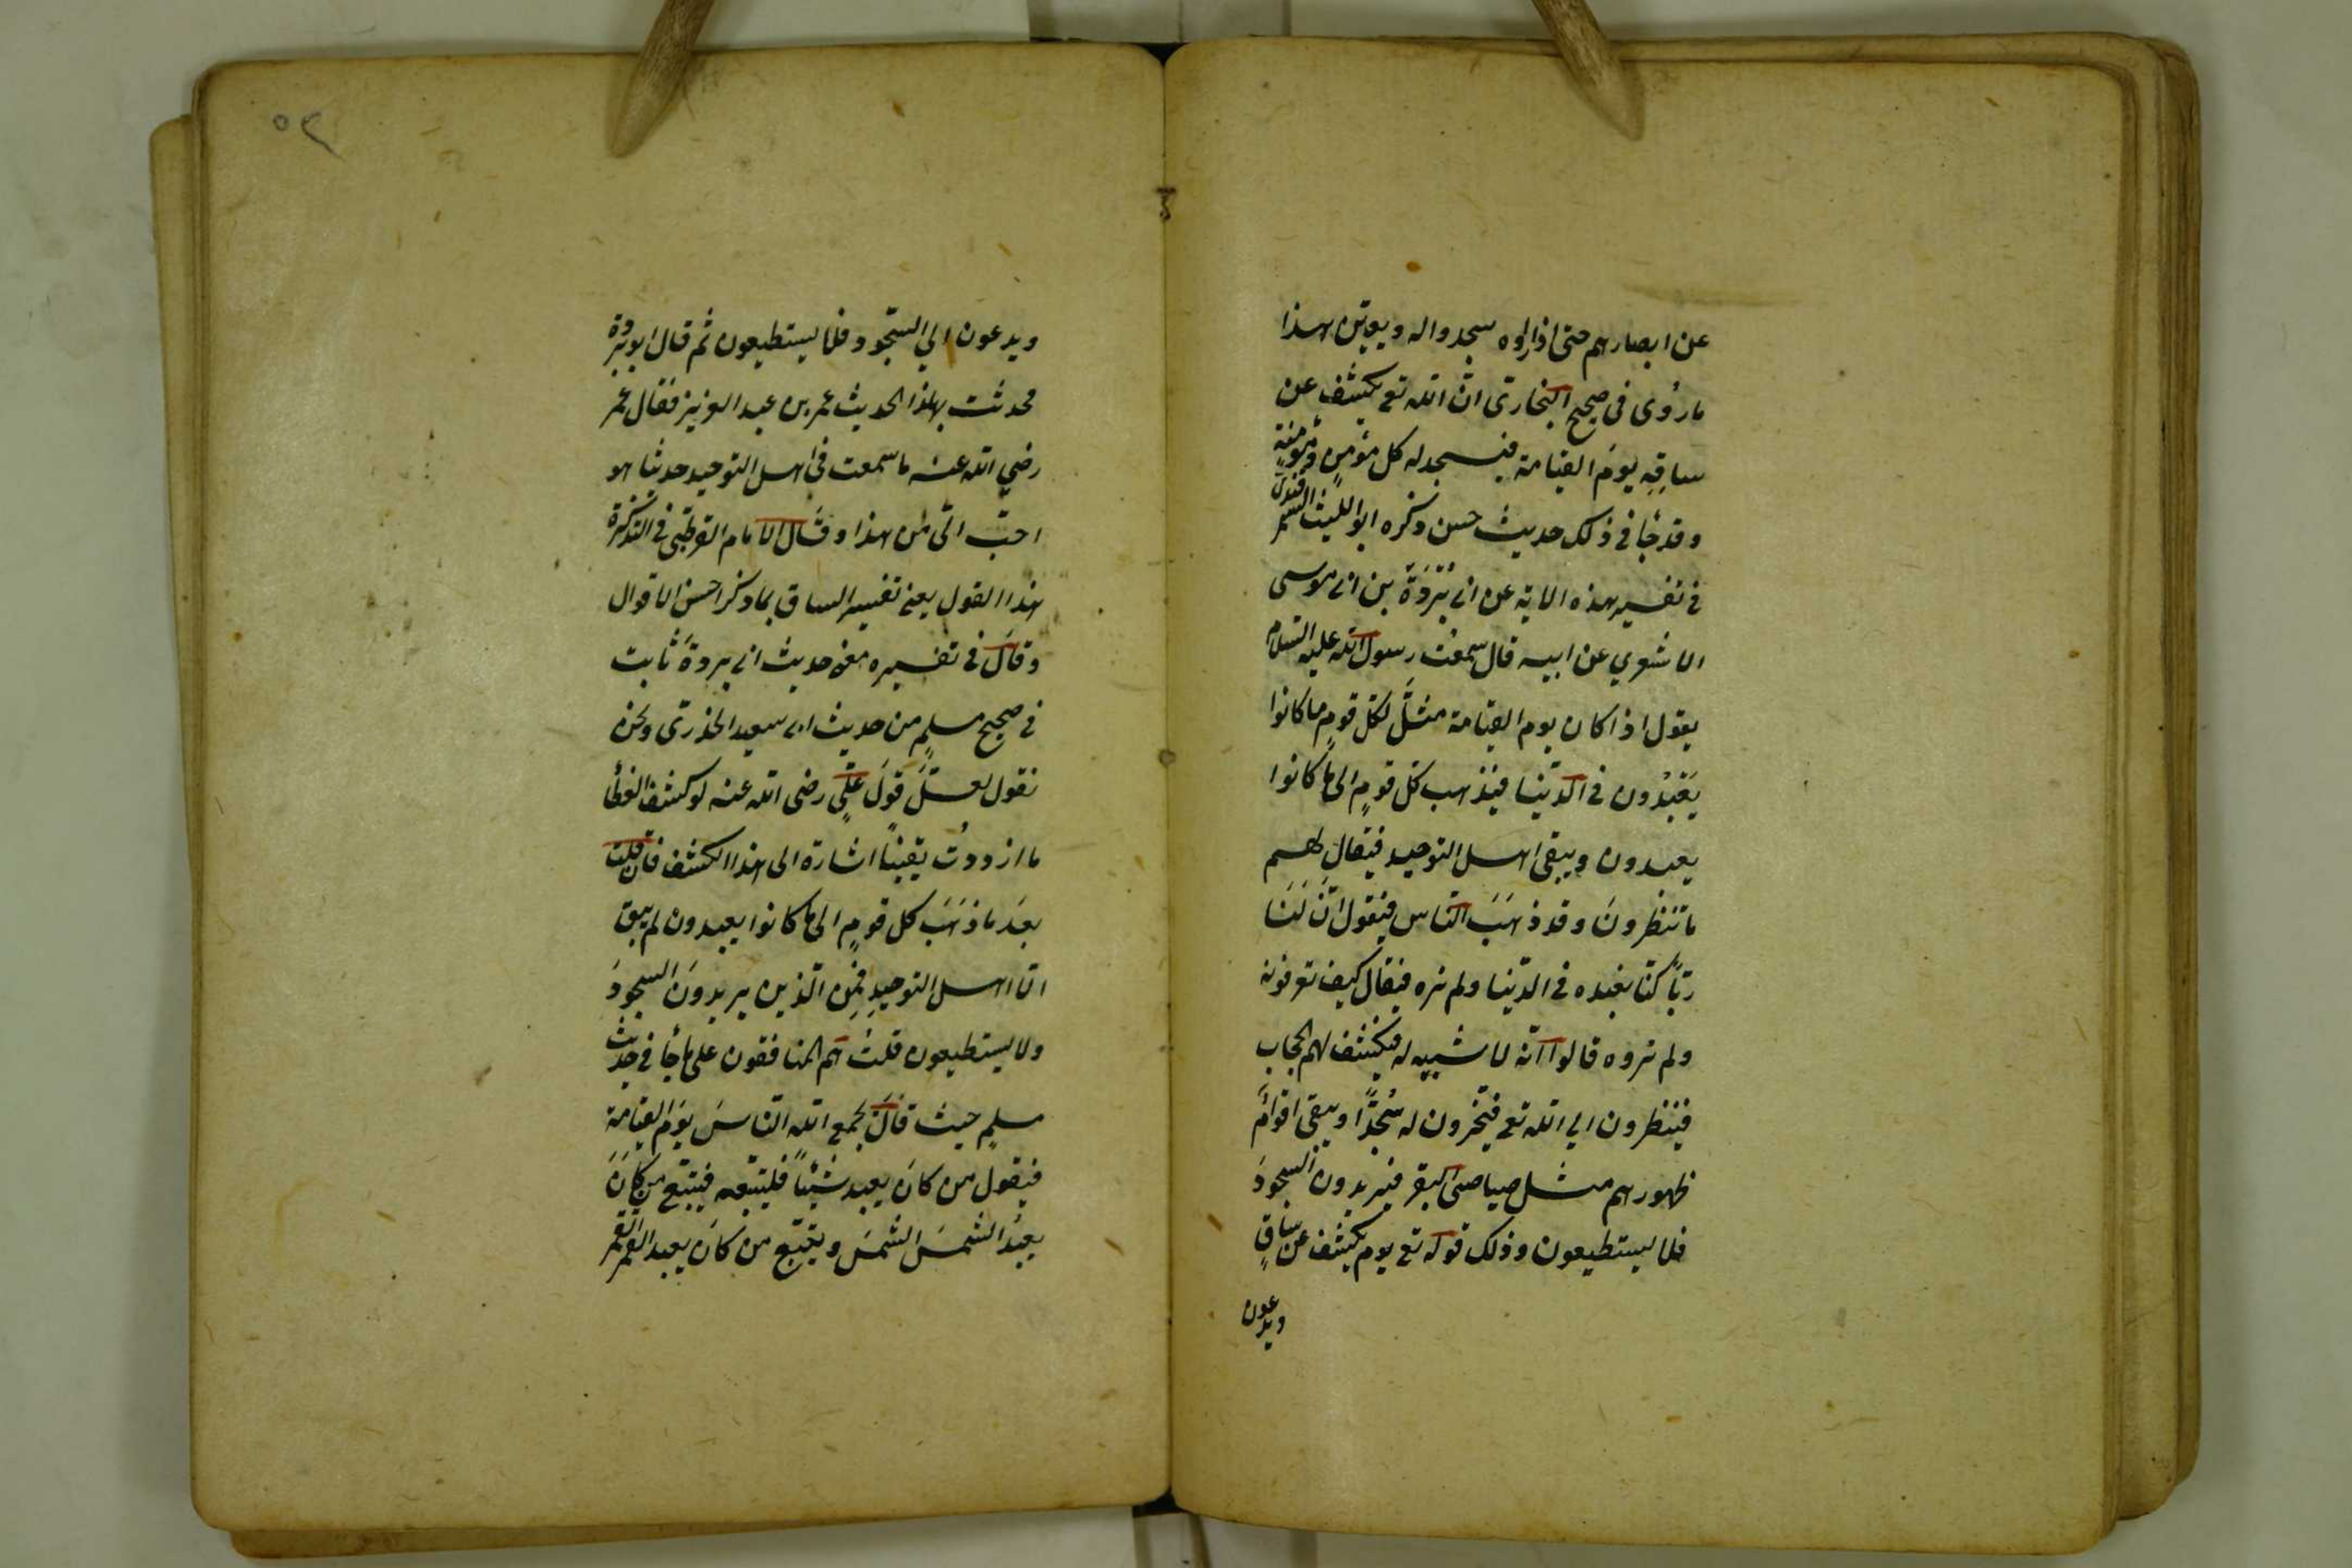 عن ابصارهم حتى اذا راوه سجدوا له ويعين هذا
ما روُى فى صحيح البخارىّ انّ الله تع يكشف عن
ساقِه يومَ القيامة فيسجد له كل مؤمنٍ ومؤمنةٍ
وقد جأ فى ذلك حديث حسن ذكره ابو الليث السمرقندى
فى تفسير هذه الاية عن ابى بُرْدَةَ بن ابى موسى
الاشعري عن ابيه قال سمعْت رسول الله عليه السّلام
يقول اذا كان يوم القيامة مثّل لكلّ قومٍ ما كانوا
يَعْبُدُون فى الدّنيا فيَذهب كلّ قومٍ الى ما كانوا
يعبدون ويبقى اهل التوحيد فيقال لهم
ما تنظرونَ وقد ذهَبَ النّاس فيقول انّ لَنَا
ربّاً كنّا نعبده فى الدّنيا ولم نره فيقال كيف تعرفونه
ولم تروه قالوا انّه لا شبيه له فيكشف لهم الحجاب
فينظرون الي الله تع فيخرون له سُجّدًا ويبقى اقوامٌ
ظهورهم مثل صياصى البقر فيريدون السجودَ
فلا يستطيعون وذلك قوله تع يوم يكشف عن ساقٍ
ويدعون
٥٢
ويدعون الي السّجود فلا يستطيعون ثم قال ابو بردة
فحدثت بهذا الحديث عمر بن عبد العزيز فقال عمر
رضي الله عنه ما سمعت فى اهل التوحيد حديثا هو
احبّ الىّ من هذا وقال الامام القرطبّى فى التذكرة
هذا القول يعنى تفسير الساق بما ذكر احسن الاقوال
وقالَ فى تفسيره معنى حديث ابى بردةَ ثابت
فى صحيح مسلمٍ من حديث ابى سعيد الخذرىّ ونحن
نقول لعلّ قولَ علّىٍ رضى الله عنه لو كشف الغطأ
ما ازددتُ يقينًا اشارة الى هذا الكشف فان قلت
بعَد ما ذهَبَ كل قومٍ الى ما كانوا يعبدون لم يبق
الّا اهل التوحيدِ فمِن الّذين يريدونَ السجودَ
ولا يستطيعون قلتُ هم المنافقون على ما جأ فى حديث
مسلمٍ حيث قالَ يجمع الله النّاسَ يوَم القيامة
فيقول من كانَ يعبد شيئاً فليتبّعه فيتبّع من كانَ
يعبدُ الشمسَ الشمسَ ويتبّع من كانَ يعبد القمر القمر